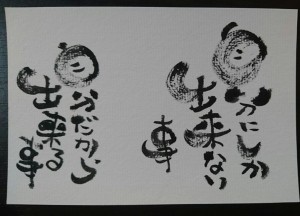 自分にしか
出来ない
事
自分だから
出来る事